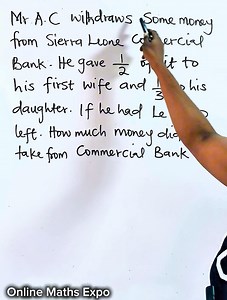 Mr A.C withdraws Some money
from Sierra Leone Commercial
Bank. He gave 1/2 of it to
his first wife and 1/3 to his
daughter. If he had Le
left. How much money did
take from Commercial Bank
Online Maths Expo